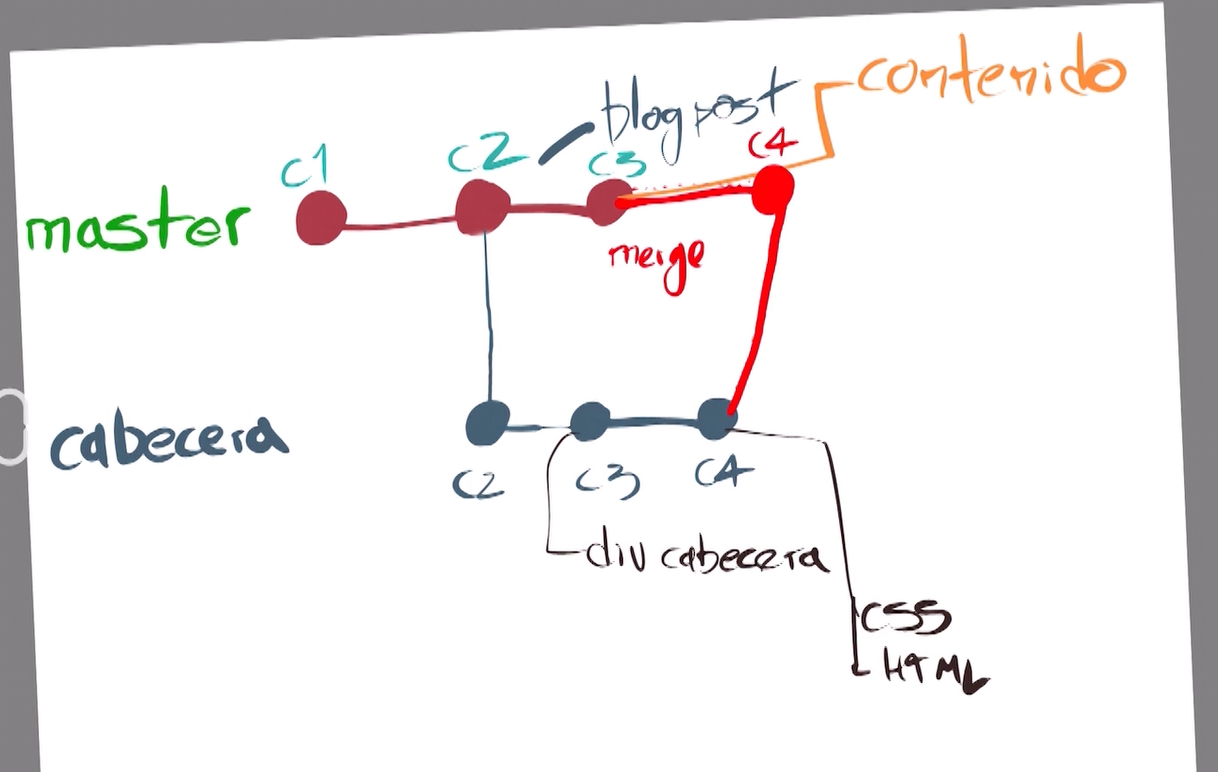 contenido
blogpost
C1
C2
C3
C4
master
merge
cabecera
C2
C3
C4
div cabecera
CSS
HTML